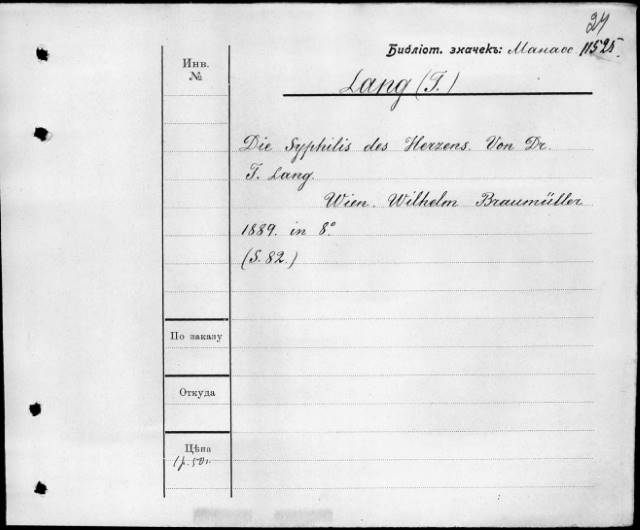 24
Библіот. значекъ: Манасс 11525.
Инв.
№
Lang (T.)
Die Syphilis des Herzens. Von Dr.
T. Lang.
Wien. Wilhelm Braumüller
1889. in 8°
(S. 82.)
По заказу
Откуда
Цѣна
1р. 50к.